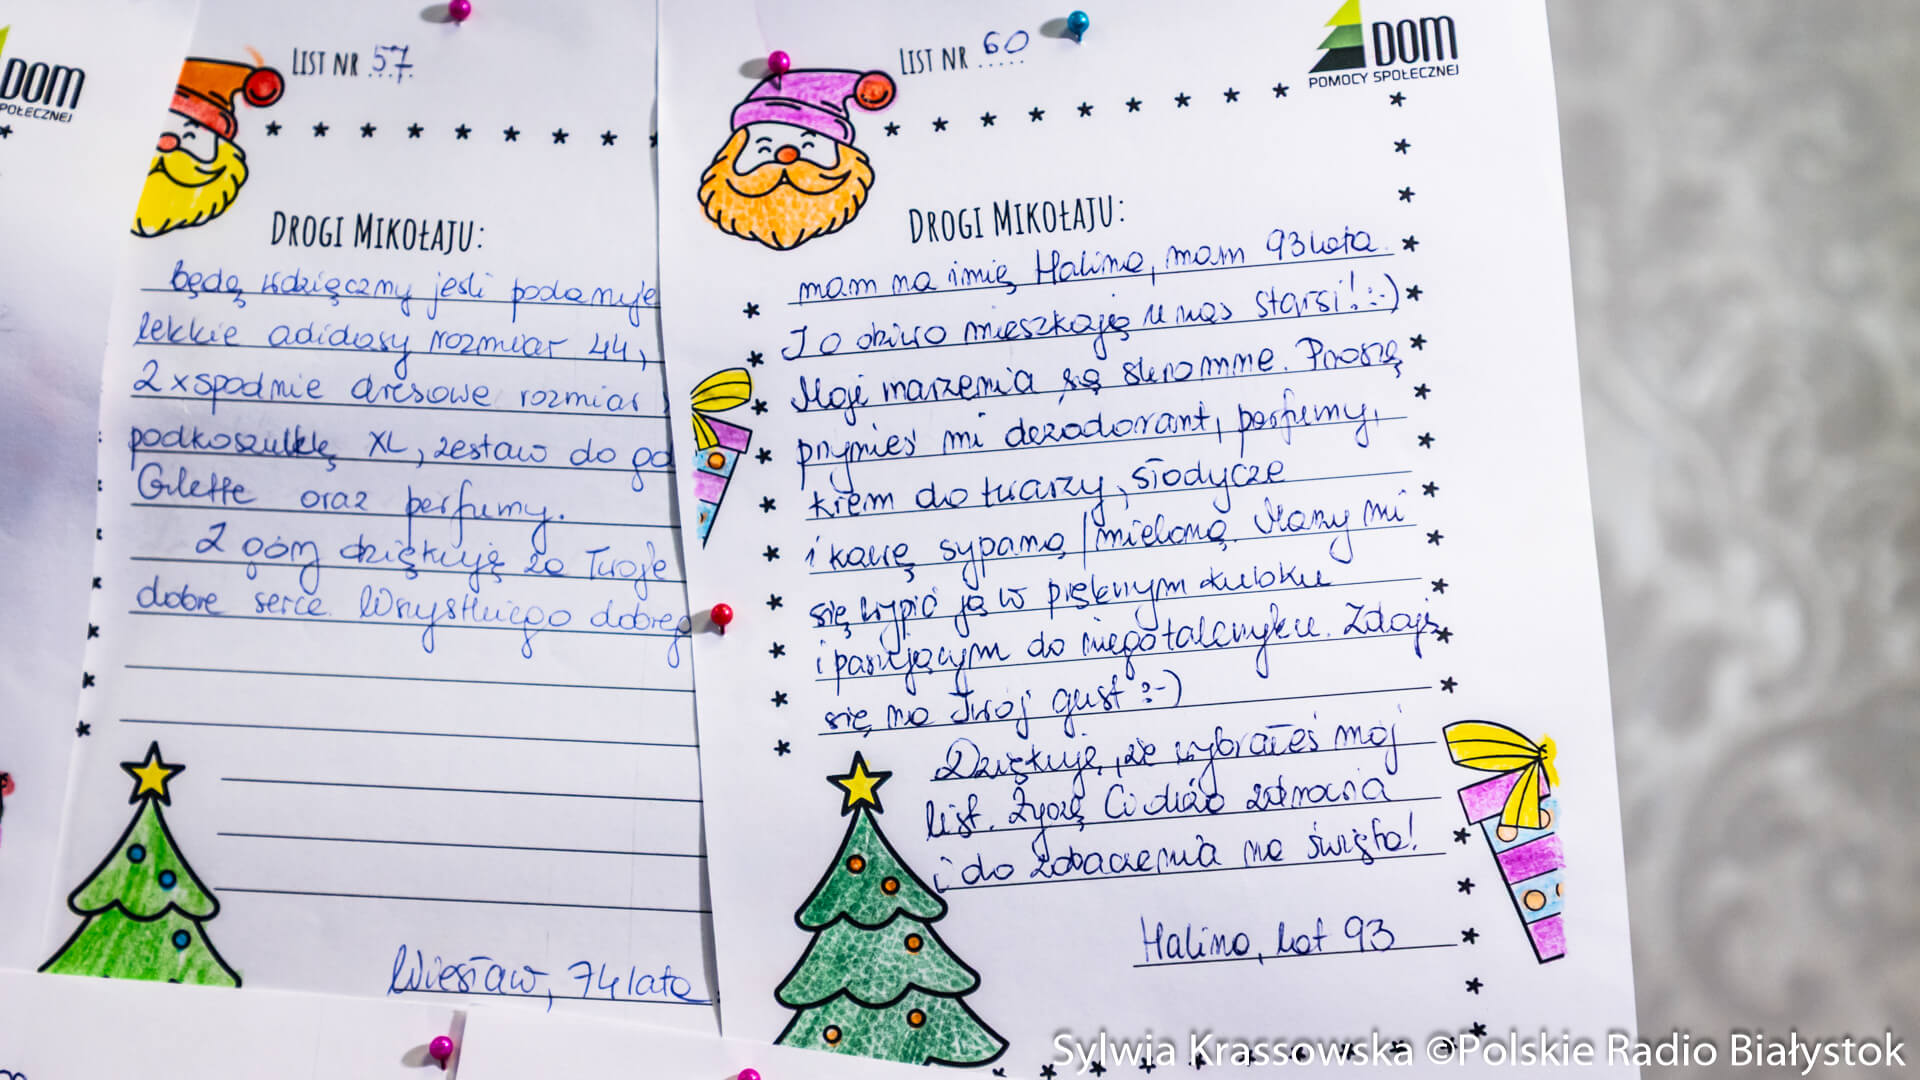 DOM
POŁECZNEJ
LIST NR 57
DROGI MIKOŁAJU:
będę wdzięczny jeśli podaruje
lekkie adidasy rozmiar 44,
2 x spodnie dresowe rozmiar
podkoszulkę XL, zestaw do go
Gilette oraz perfumy.
Z góry dziękuję za Twoje
dobre serce. Wszystkiego dobreg
Wiesław, 74 lata
LIST NR 60
DOM
POMOCY SPOŁECZNEJ
DROGI MIKOŁAJU:
mam na imię Halina, mam 93 lata.
I o dziwo mieszkają u nas starsi! :-)
Moje marzenia są skromne. Proszę
przynieś mi dezodorant, perfumy,
krem do twarzy, słodycze
i kawę sypaną/mieloną. Marzy mi
się wypić ją w pięknym kubku
i pasującym do niego talerzyku. Zdaję
się na Twój gust :-)
Dziękuję, że wybrałeś mój
list. Życzę Ci dużo zdrowia
i do zobaczenia na święta!
Halina, lat 93
Sylwia Krassowska ©Polskie Radio Białystok